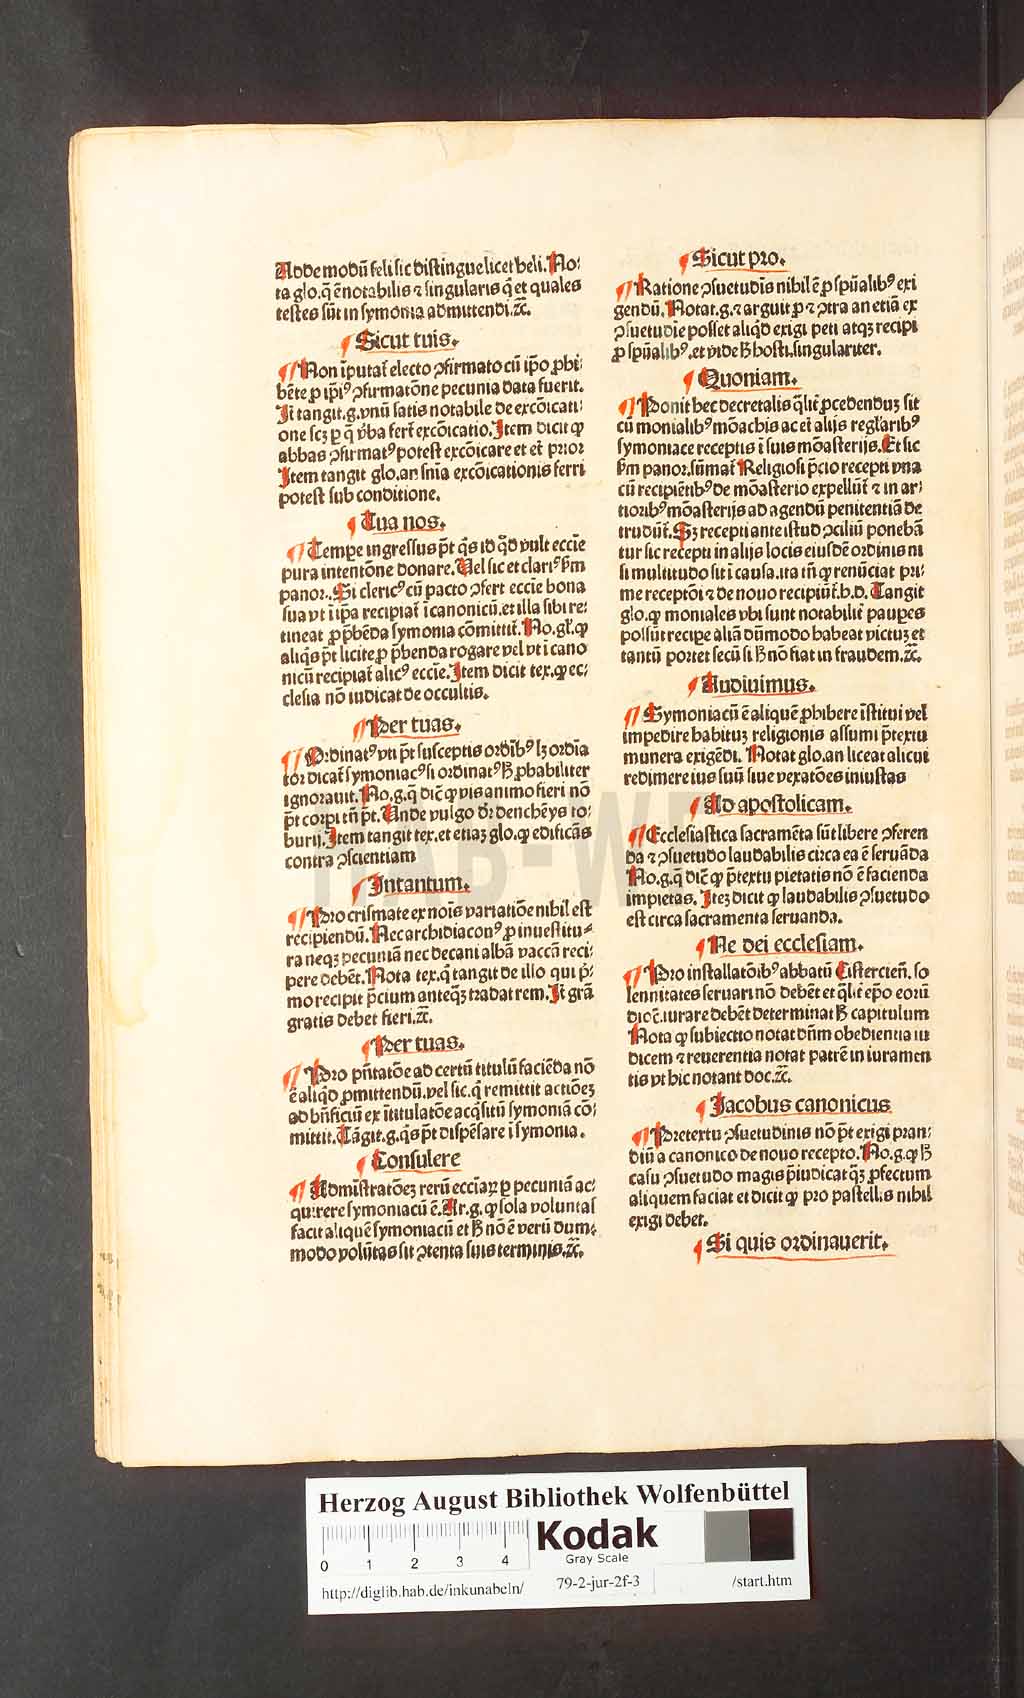 Adde modũ feli sic distingue licet heli. No⸗
ta glo. q̃ ẽ notabilis ⁊ singularis q̃ et quales
testes sũt in symonia admittendi. ⁊c̃.
¶ Sicut tuis.
¶ Non ĩputat̃ electo ꝯfirmato cũ ip̃o ꝓhi⸗
bẽte ꝓ ip̃i⁹ ꝯfirmatõne pecunia data fuerit.
It̃ tangit. g. vnũ satis notabile de excõicati⸗
one scꝫ ꝑ q̃ v̓ba fert̃ excõicatio. Item dicit ꝙ
abbas ꝯfirmat⁹ potest excõicare et et̃ prior
Item tangit glo. an sñia excõicationis ferri
potest sub conditione.
¶ Tua nos.
¶ Tempe ingressus p̃t q̃s id q̃d vult eccĩe
pura intentõne donare. Vel sic et clari⁹ ẜm
panor. Si cleric⁹ cũ pacto ꝯfert eccĩe bona
sua vt ĩ ip̃a recipiat̃ ĩ canonicũ. et illa sibi re⸗
tineat ꝓ p̃bẽda symonia cõmittit̃. No. gl̃. ꝙ
aliq̃s p̃t licite ꝓ p̃benda rogare vel vt ĩ cano
nicũ recipiat̃ alic⁹ eccĩe. Item dicit tex. ꝙ ec⸗
clesia nõ iudicat de occultis.
¶ Per tuas.
¶ Ordinat⁹ vti p̃t susceptis ordĩb⁹ lꝫ ordĩa
tor dicat̃ symoniac⁹ si ordinat⁹ ꝧ ꝓbabiliter
ignorauit. No. g. q̃ dic̃ ꝙ vis animo fieri nõ
p̃t corpi tñ p̃t. Unde vulgo dr̃ denchẽys to⸗
burij. Item tangit tex. et etiaꝫ glo. ꝙ edificãs
contra ꝯscientiam
¶ Intantum.
¶ Pro crismate ex nõis variatiõe nihil est
recipiendũ. Nec archidiacon⁹ ꝓ inuestitu⸗
ra neqꝫ pecuniã nec decani albã vaccã reci⸗
pere debẽt. Nota tex. q̃ tangit de illo qui p̃⸗
mo recipit p̃cium anteqꝫ̃ tradat rem. It̃ grã
gratis debet fieri. ⁊c̃.
¶ Per tuas.
¶ Pro pñtatõe ad certũ titulũ faciẽda nõ
ẽ aliq̃d ꝓmittendũ. vel sic. q̃ remittit actiõeꝫ
ad bñficiũ ex ĩtitulatõe acq̃sitũ symoniã cõ⸗
mittit. Tãgit. g. q̃s p̃t dispẽsare ĩ symonia.
¶ Consulere
¶ Admistratõeꝫ rerũ eccĩaꝝ ꝑ pecuniã ac⸗
quirere symoniacũ ẽ. Ar. g. ꝙ sola voluntas
facit aliquẽ symoniacũ et ꝧ nõ ẽ verũ dum⸗
modo volũtas sit ꝯtenta suis terminis. ⁊c̃.
¶ Sicut pro.
¶ Ratione ꝯsuetudĩs nihil ẽ ꝓ sp̃ũalib⁹ exi
gendũ. Notat. g. ⁊ arguit ꝓ ⁊ ꝯtra an etiã ex
ꝯsuetudĩe posset aliq̃d exigi peti atqꝫ recipi
ꝓ sp̃ũalib⁹. et vide ꝧ hosti. singulariter.
¶ Quoniam.
¶ Ponit hec decretalis q̃lit̃ ꝓcedenduꝫ sit
cũ monialib⁹ mõachis ac et̃ alijs regl̃arib⁹
symoniace receptis ĩ suis mõasterijs. Et sic
ẜm panor. sũmat̃ Religiosi p̃cio recepti vna
cũ recipiẽtib⁹ de mõasterio expellũt̃ ⁊ in ar⸗
tiorib⁹ mõasterijs ad agendũ penitentiã de
trudũt̃. Sꝫ recepti ante istud ꝯciliũ ponebã
tur sic recepti in alijs locis eiusdẽ ordinis ni
si multitudo sit ĩ causa. ita tñ ꝙ renũciat pri⸗
me receptõi ⁊ de nouo recipiũt̃. h. d. Tangit
glo. ꝙ moniales vbi sunt notabilit̃ paupes
possũt recipe aliã dũmodo habeat victuꝫ et
tantũ portet secũ si ꝧ nõ fiat in fraudem. ⁊c̃.
¶ Audiuimus.
¶ Symoniacũ ẽ aliquẽ ꝓhibere ĩstitui vel
impedire habituꝫ religionis assumi p̃textu
munera exigẽdi. Notat glo. an liceat alicui
redimere ius suũ siue vexatões iniustas
¶ Ad apostolicam.
¶ Ecclesiastica sacramẽta sũt libere ꝯferen
da ⁊ ꝯsuetudo laudabilis circa ea ẽ seruãda
No. g. q̃ dic̃ ꝙ p̃textu pietatis nõ ẽ facienda
impietas. Iteꝫ dicit ꝙ laudabilis ꝯsuetudo
est circa sacramenta seruanda.
¶ Ne dei ecclesiam.
¶ Pro installatõib⁹ abbatũ Cistercieñ. so
lennitates seruari nõ debẽt et q̃lit̃ ep̃o eorũ
dioc̃. iurare debẽt determinat ꝧ capitulum
Nota ꝙ subiectio notat dñm obedientia iu
dicem ⁊ reuerentia notat patrẽ in iuramen
tis vt hic notant doc. ⁊c̃.
¶ Jacobus canonicus
¶ Pretextu ꝯsuetudinis nõ p̃t exigi pran⸗
diũ a canonico de nouo recepto. No. g. ꝙ ꝧ
casu ꝯsuetudo magis p̃iudicat qꝫ̃ ꝓfectum
aliquem faciat et dicit ꝙ pro pastellis nihil
exigi debet.
¶ Si quis ordinauerit.
HAB-WF
Herzog August Bibliothek Wolfenbüttel
0 1 2 3 4
Kodak
Gray Scale
http://diglib.hab.de/inkunabeln/ 79-2-jur-2f-3 /start.htm